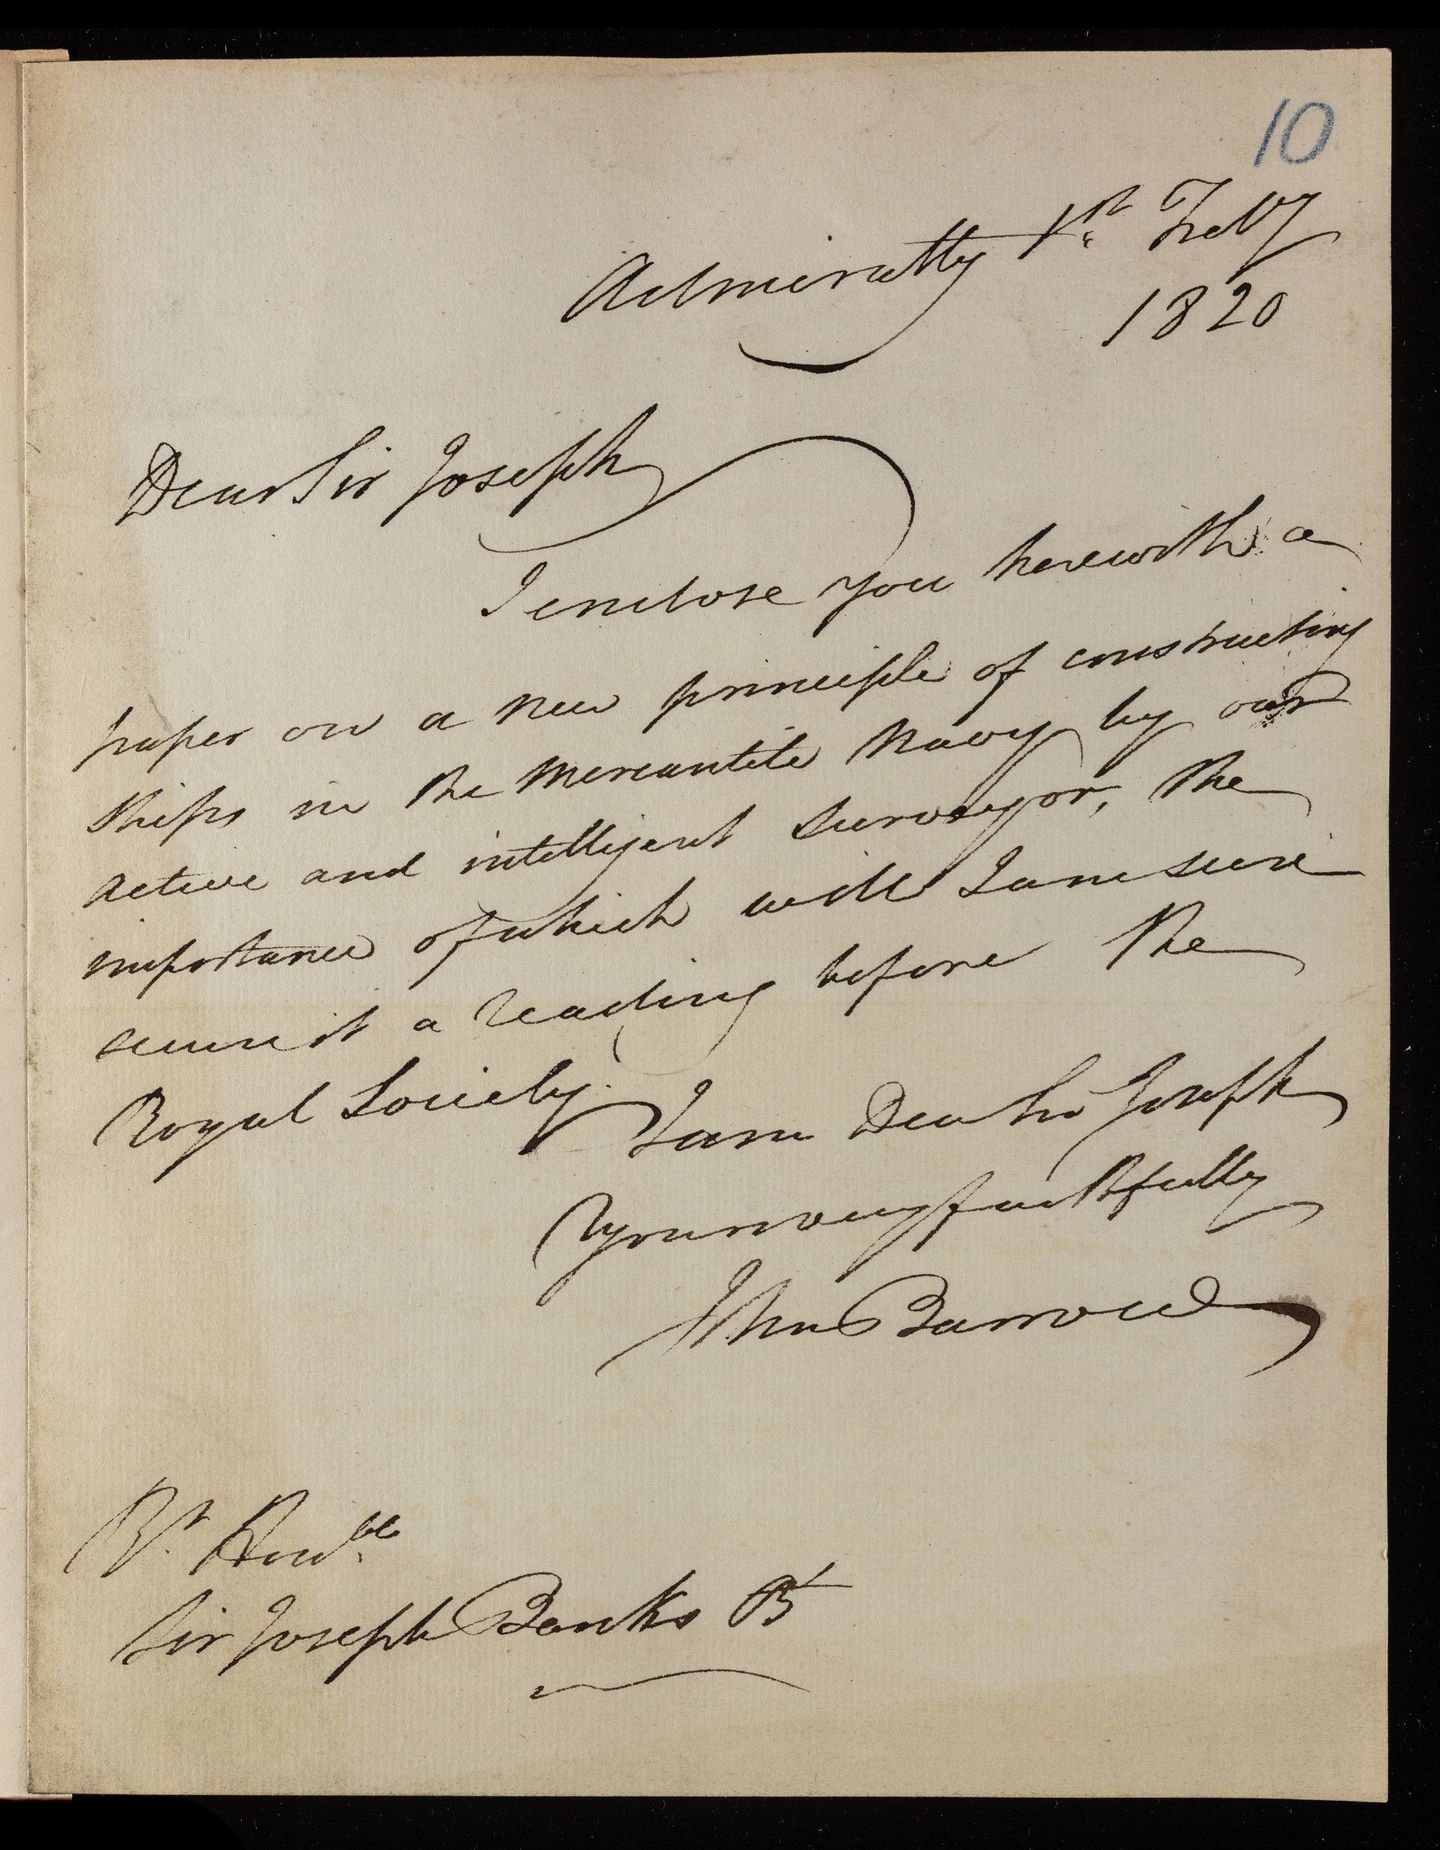 10
Admiralty 1st Feby
1820
Dear Sir Joseph
I enclose you herewith a
paper on a new principle of constructing
ships in the Mercantile Navy by our
active and intelligent Surveyor, the
importance of which will I am sure
secure it a reading before the
Royal Society.
I am Dear Sir Joseph
Yours very faithfully
John Barrow
Rt. Honble
Sir Joseph Banks Bt